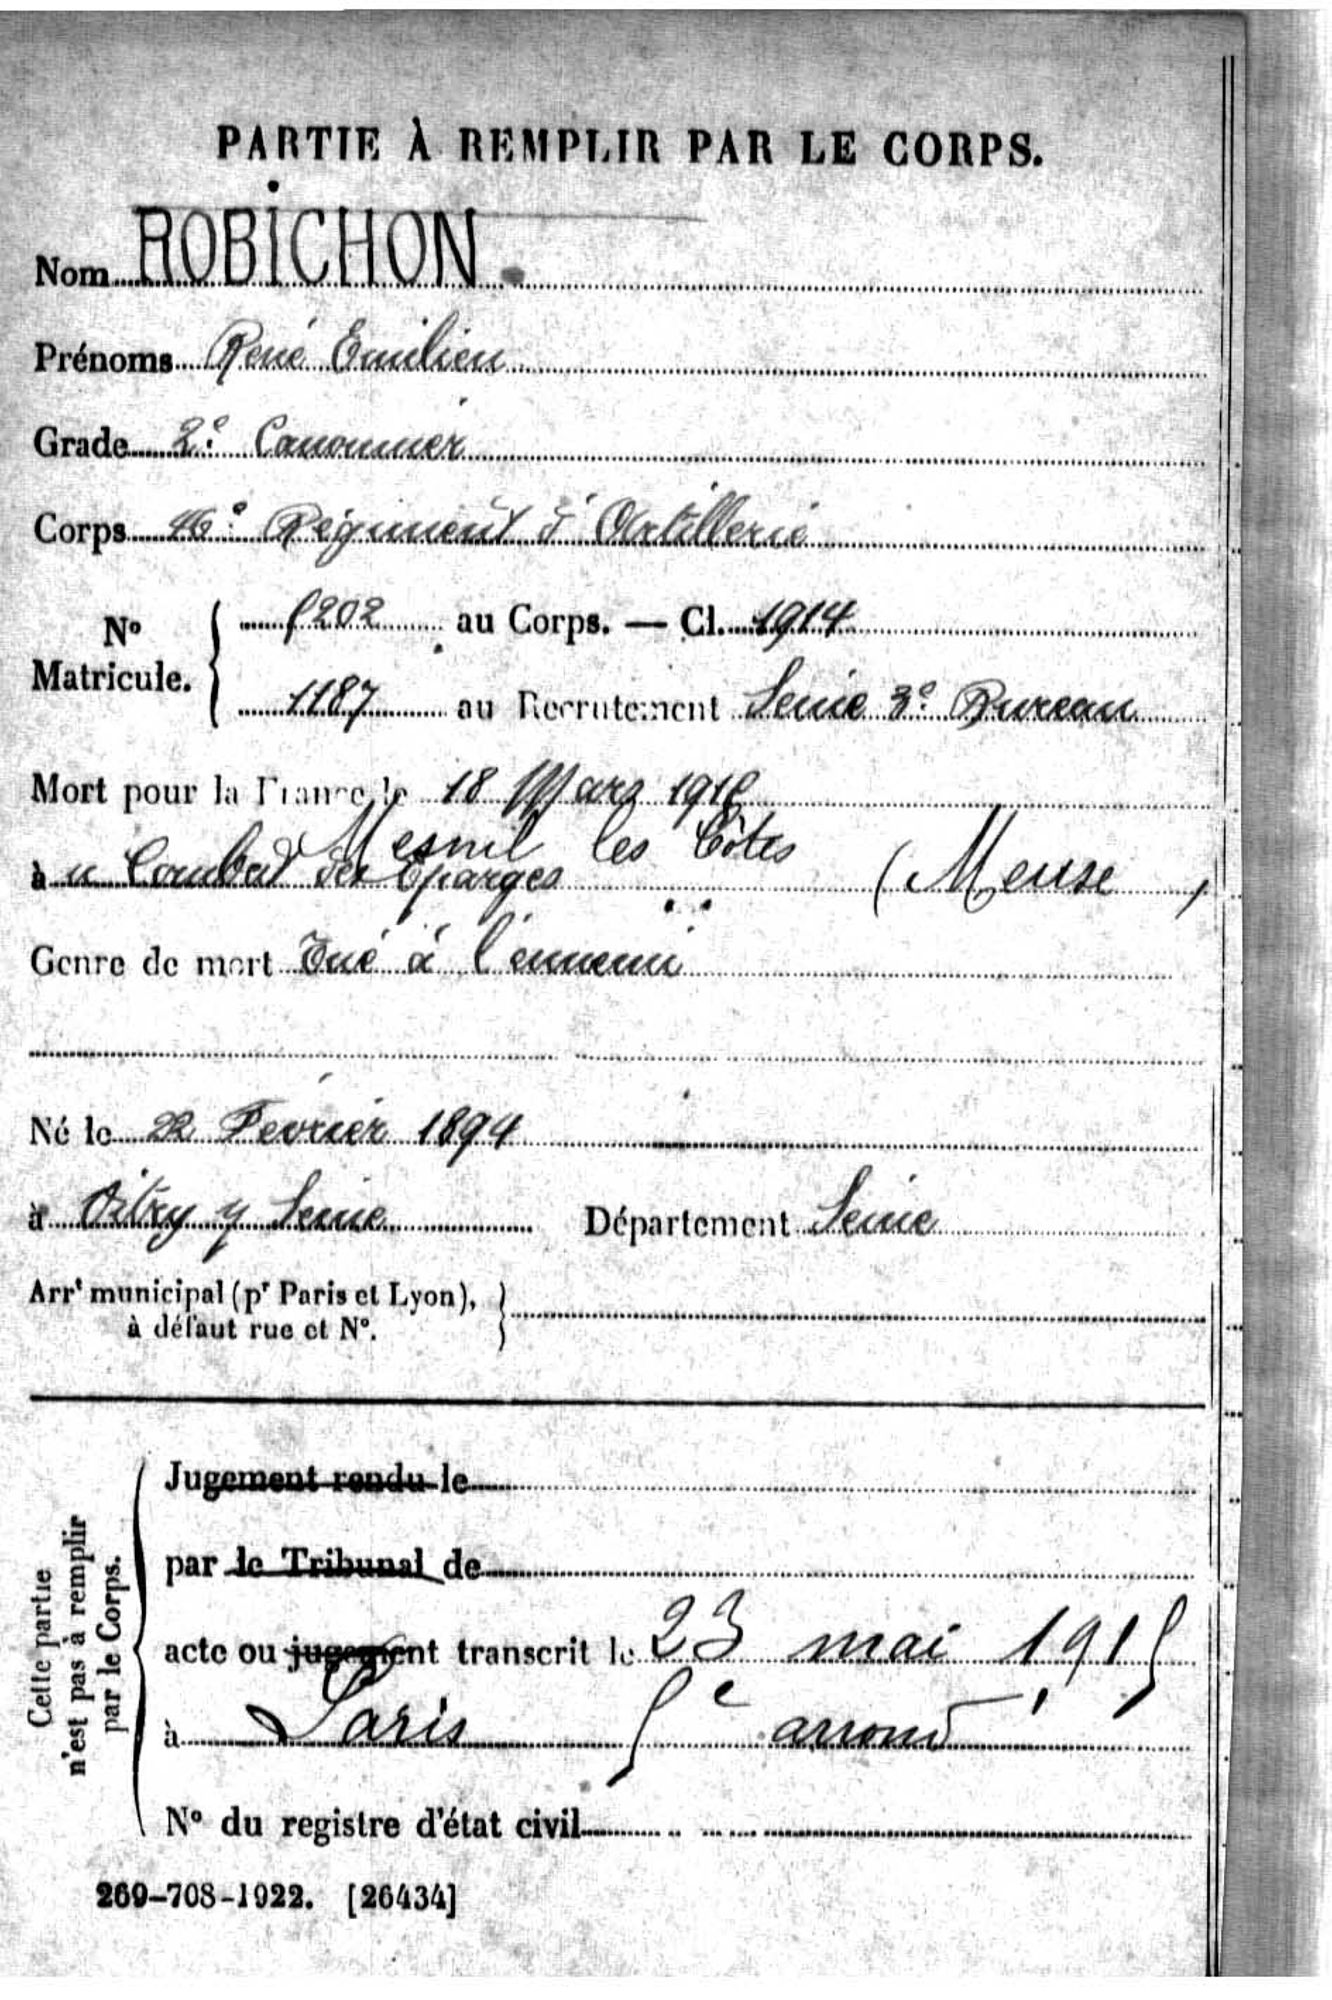 PARTIE À REMPLIR PAR LE CORPS.
Nom ROBICHON
Prénoms René Emilien
Grade 2e Canonnier
Corps 46e Régiment d'Artillerie
No Matricule.
5202 au Corps. — Cl. 1914
1187 au Recrutement Seine 3e Bureau
Mort pour la France le 18 Mars 1915
Mesnil les Côtes
à u Combat des Eparges (Meuse)
Genre de mort Tué à l'ennemi
Né le 22 Février 1894
à Vitry s/ Seine Département Seine
Arrt municipal (pr Paris et Lyon),
à défaut rue et No.
Cette partie
n'est pas à remplir
par le Corps.
Jugement rendu le
par le Tribunal de
acte ou jugement transcrit le 23 mai 1915
à Paris 5e arrond
No du registre d'état civil
269-708-1922. [26434]